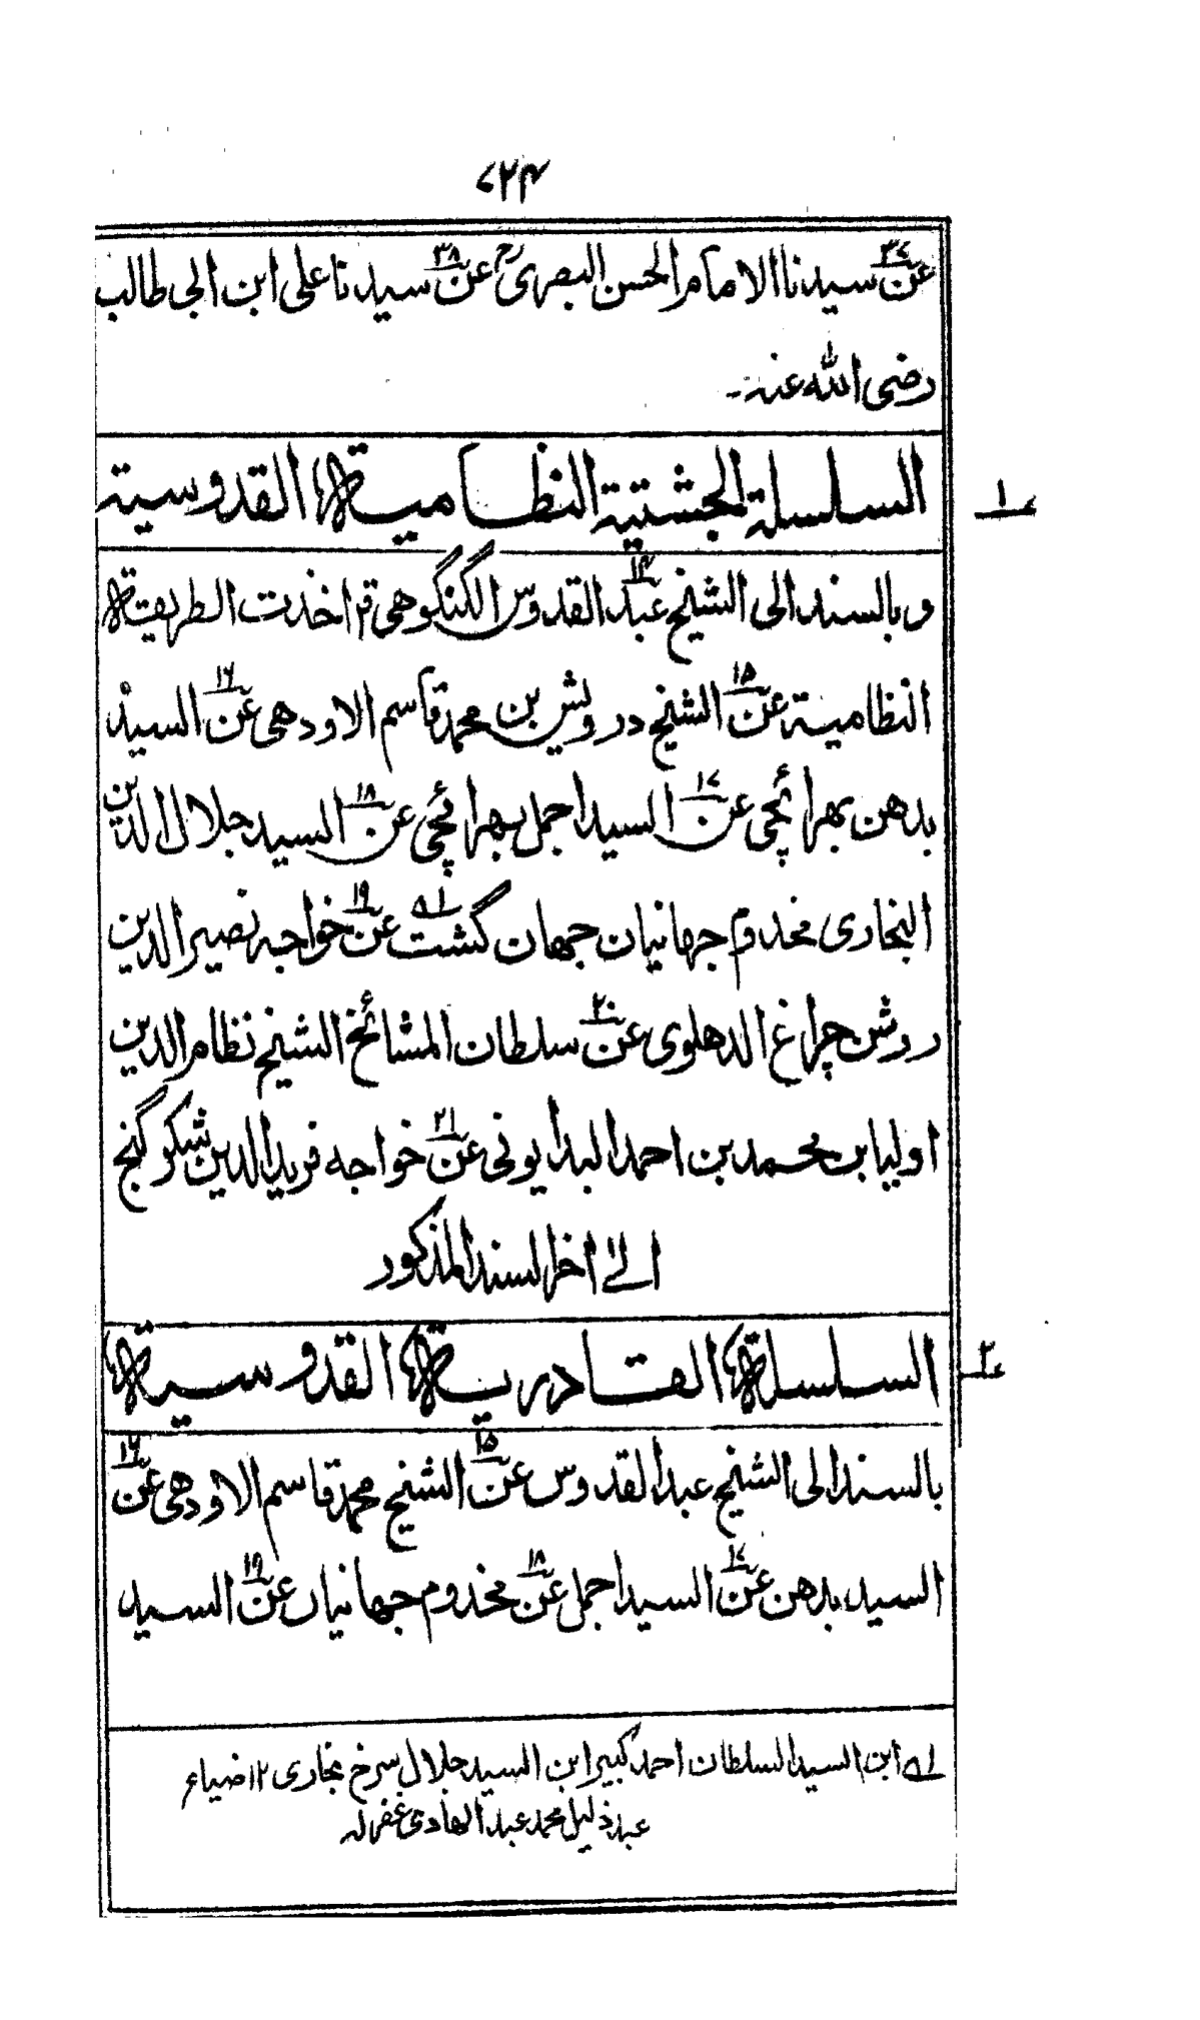 ۷۲۴
عن۳۷ سیدنا الامام الحسن البصری رح عن۳۸ سیدنا علی ابن ابی طالب
رضی الله عنه۔
السلسلة الچشتیة النظامیة القدوسیة
۱
و بالسند الی الشیخ عبد۱۴ القدوس الگنگوهی قد اخذت الطریقة
النظامیة عن۱۵ الشیخ درویش بن محمد قاسم الاودهی عن۱۶ السید
بدهن بهرائچی عن۱۷ السید اجمل بهرائچی عن۱۸ السید جلال الدین
البخاری مخدوم جهانیان جهان گشت ؎۱ عن۱۹ خواجه نصیر الدین
روشن چراغ الدهلوی عن۲۰ سلطان المشائخ الشیخ نظام الدین
اولیا بن محمد بن احمد البدایونی عن۲۱ خواجه فرید الدین شکر گنج
الیٰ اخر السند المذکور
السلسلة القادریة القدوسیة
۲
بالسند الی الشیخ عبد القدوس عن۱۵ الشیخ محمد قاسم الاودهی عن۱۶
السید بدهن عن۱۷ السید اجمل عن۱۸ مخدوم جهانیاں عن۱۹ السید
؎۱ ابن السید السلطان احمد کبیر ابن السید جلال سرخ بخاری ۱۲ ضیاء
عبد ذلیل محمد عبد الهادی غفر له